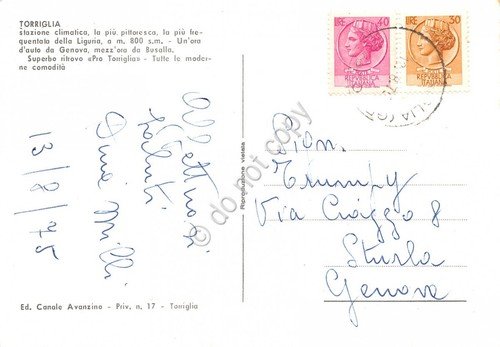 TORRIGLIA
stazione climatica, la più pittoresca, la più fre-
quentata della Liguria, a m. 800 s.m. - Un'ora
d'auto da Genova, mezz'ora da Busalla.
Superbo ritrovo «Pro Torriglia» - Tutte le moder-
ne comodità
LIRE 40
POSTE
REPUBBLICA
ITALIANA
LIRE 30
POSTE
REPUBBLICA
ITALIANA
Affettuosi
saluti
13/8/75
Riproduzione vietata
do not copy
Sign.
Trumpy
Via
8
Sturla
Genova
Ed. Canale Avanzino - Priv. n. 17 - Torriglia